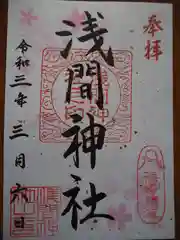 奉拝
浅間神社
令和三年三月六日